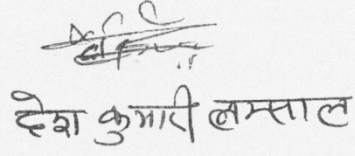 देश कुमारी लम्साल